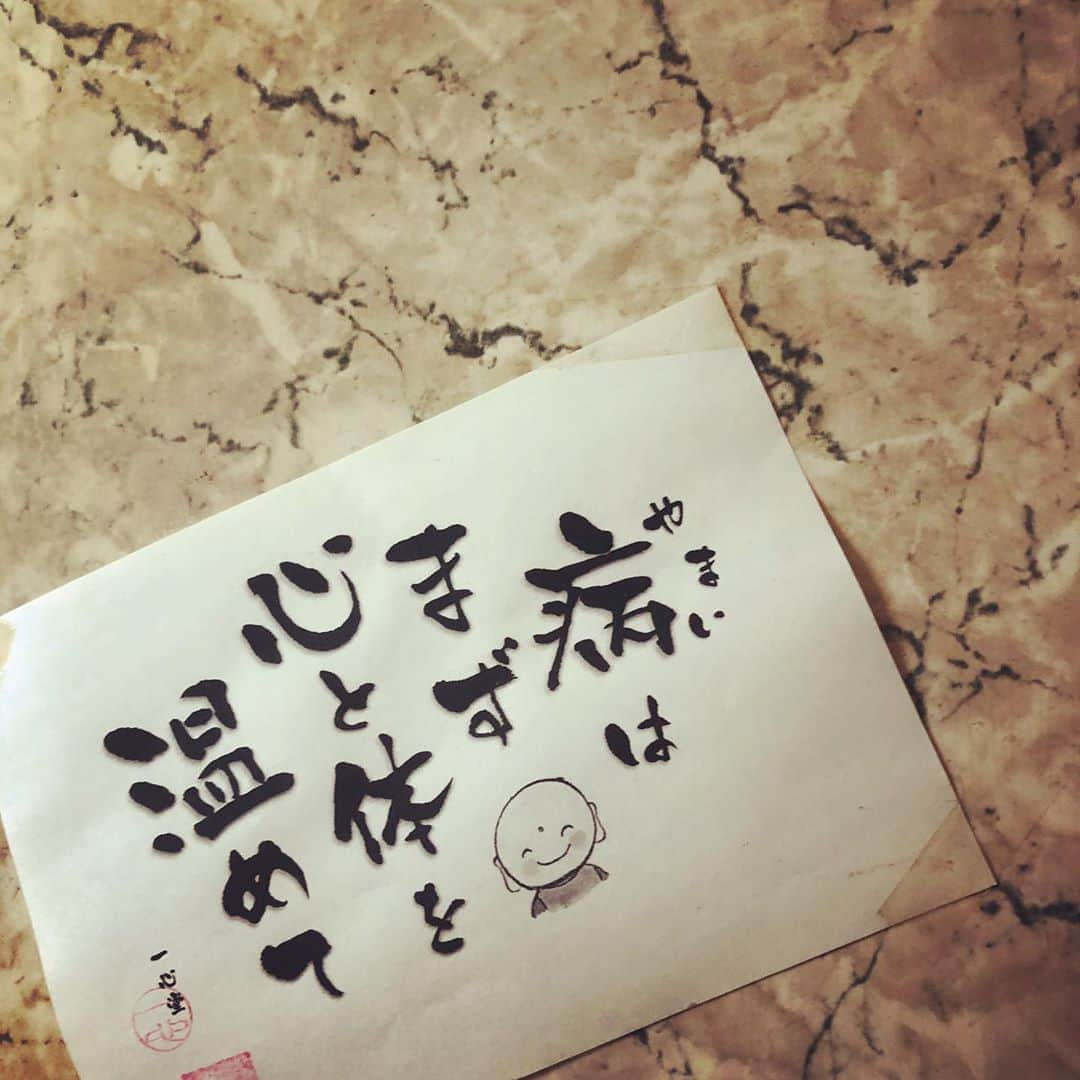 病は
やまい
まず
心と体を
温めて
一心堂